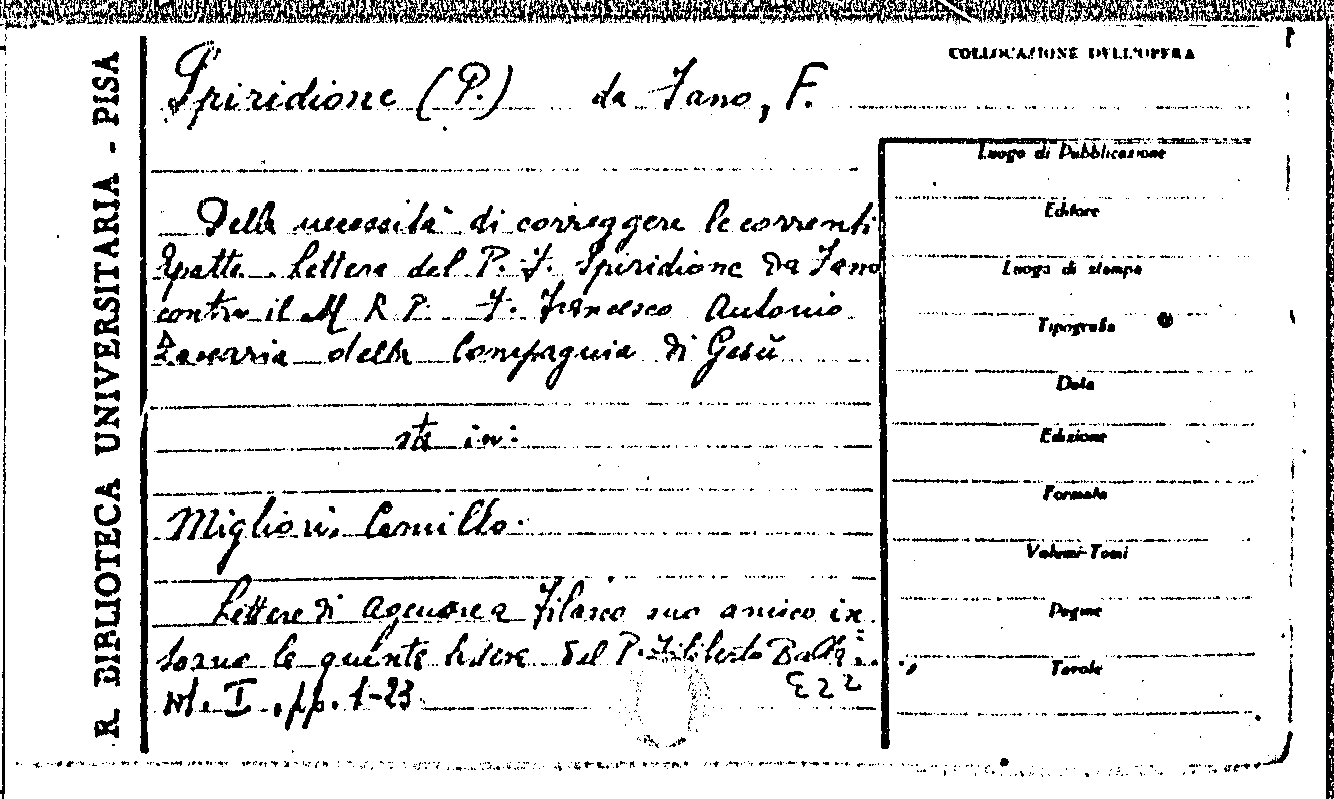 R. BIBLIOTECA UNIVERSITARIA - PISA
COLLOCAZIONE DELL'OPERA
Spiridione (P.) da Fano, F.
Della necessità di correggere le correnti
Epatte. Lettera del P. F. Spiridione da Fano
contro il M R P. F. Francesco Antonio
Zaccaria della Compagnia di Gesù
sta in:
Migliori, Camillo.
Lettere di Agenore a Filarco suo amico in-
torno le quinte lettere del P. Filiberto Balla..,
Vol. I, pp. 1-23
E22
Luogo di Pubblicazione
Editore
Luogo di stampa
Tipografia
Data
Edizione
Formato
Volumi-Tomi
Pagine
Tavole